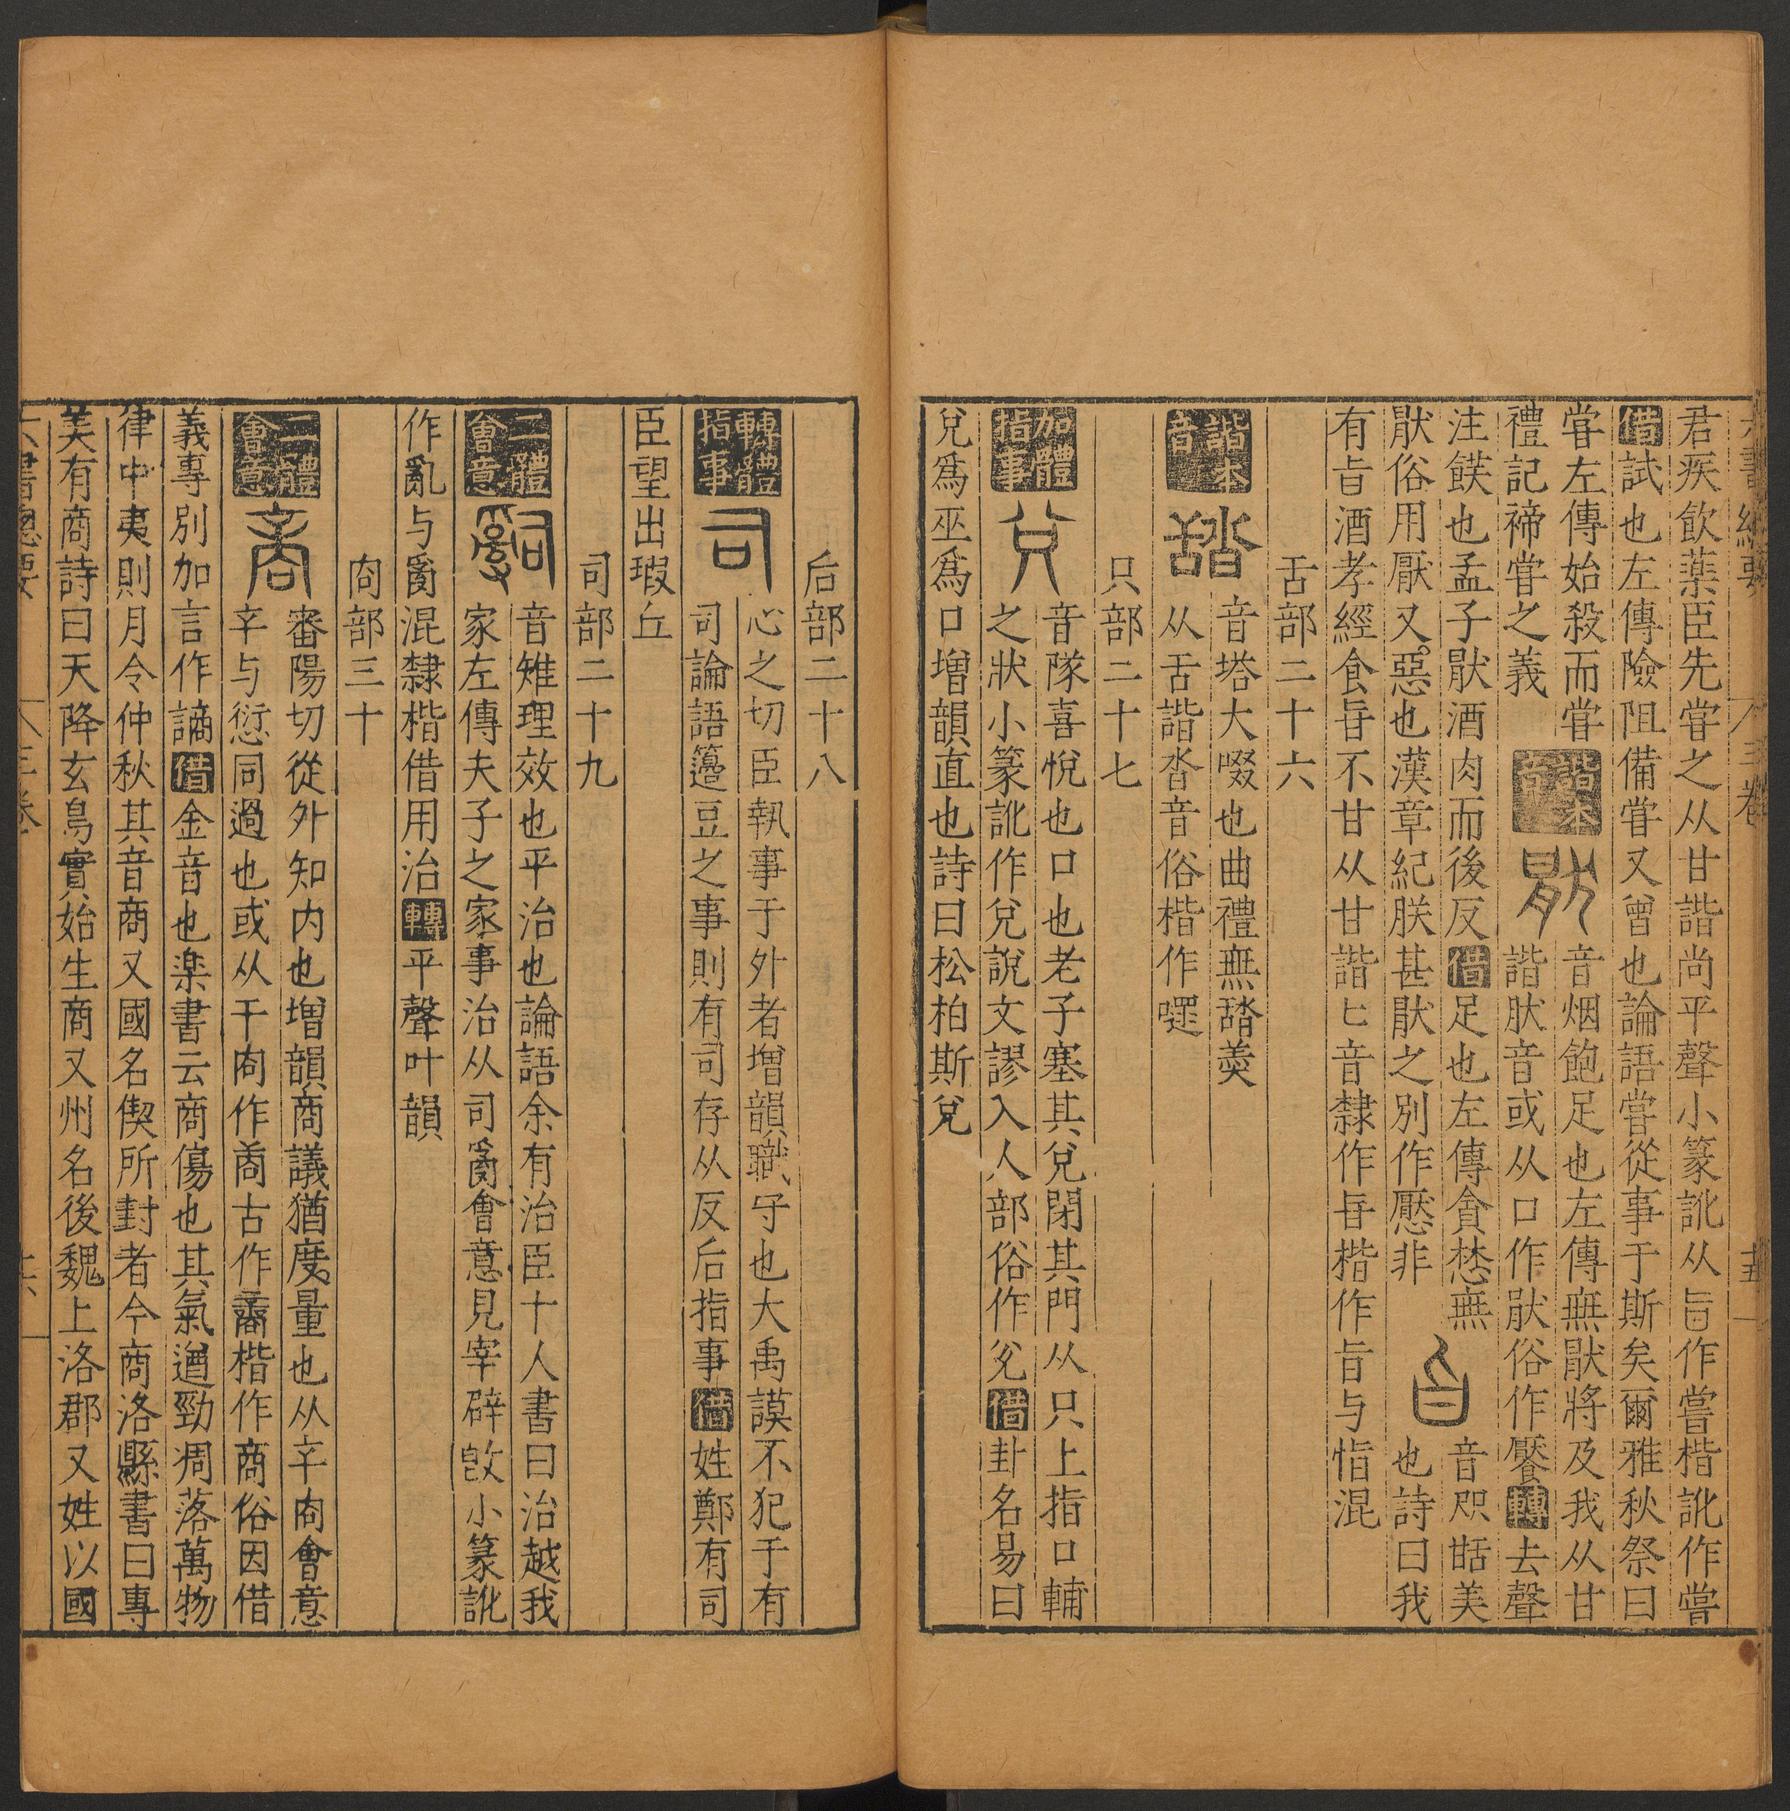 六書總要 三卷 十五
君疾飲藥臣先甞之从甘諧尚平聲小篆訛从旨作嘗楷訛作嘗
借試也左傳險阻備甞又曾也論語甞從事于斯矣爾雅秋祭曰
甞左傳始殺而甞
禮記禘甞之義
諧本音 猒 音烟飽足也左傳無猒將及我从甘
諧肰音或从口作猒俗作饜轉去聲
注饫也孟子猒酒肉而後反借足也左傳貪惏無
猒俗用厭又惡也漢章紀朕甚猒之別作懕非
㫖 音咫甛美
也詩曰我
有㫖酒孝經食㫖不甘从甘諧匕音隸作㫖楷作旨与恉混
舌部二十六
諧本音 䑜 音塔大啜也曲禮無䑜羮
从舌諧沓音俗楷作嚃
只部二十七
加體指事 兌 音隊喜悅也口也老子塞其兌閉其門从只上指口輔
之狀小篆訛作兌說文謬入人部俗作兊借卦名易曰
兌爲巫爲口增韻直也詩曰松柏斯兌
后部二十八
轉體指事 司 心之切臣執事于外者增韻職守也大禹謨不犯于有
司論語籩豆之事則有司存从反后指事借姓鄭有司
臣望出瑕丘
司部二十九
二體會意 嗣 音雉理效也平治也論語余有治臣十人書曰治越我
家左傳夫子之家事治从司𤔔會意見宰辟敦小篆訛
作亂与𤔔混隸楷借用治轉平聲叶韻
㕯部三十
二體會意 商 審陽切從外知内也增韻商議猶度量也从䇂㕯會意
䇂与愆同過也或从干㕯作啇古作𧶜楷作商俗因借
義專別加言作謪借金音也楽書云商傷也其氣遒勁凋落萬物
律中夷則月令仲秋其音商又國名偰所封者今商洛縣書曰專
美有商詩曰天降玄鳥實始生商又州名後魏上洛郡又姓以國
六書總要 三卷 十六